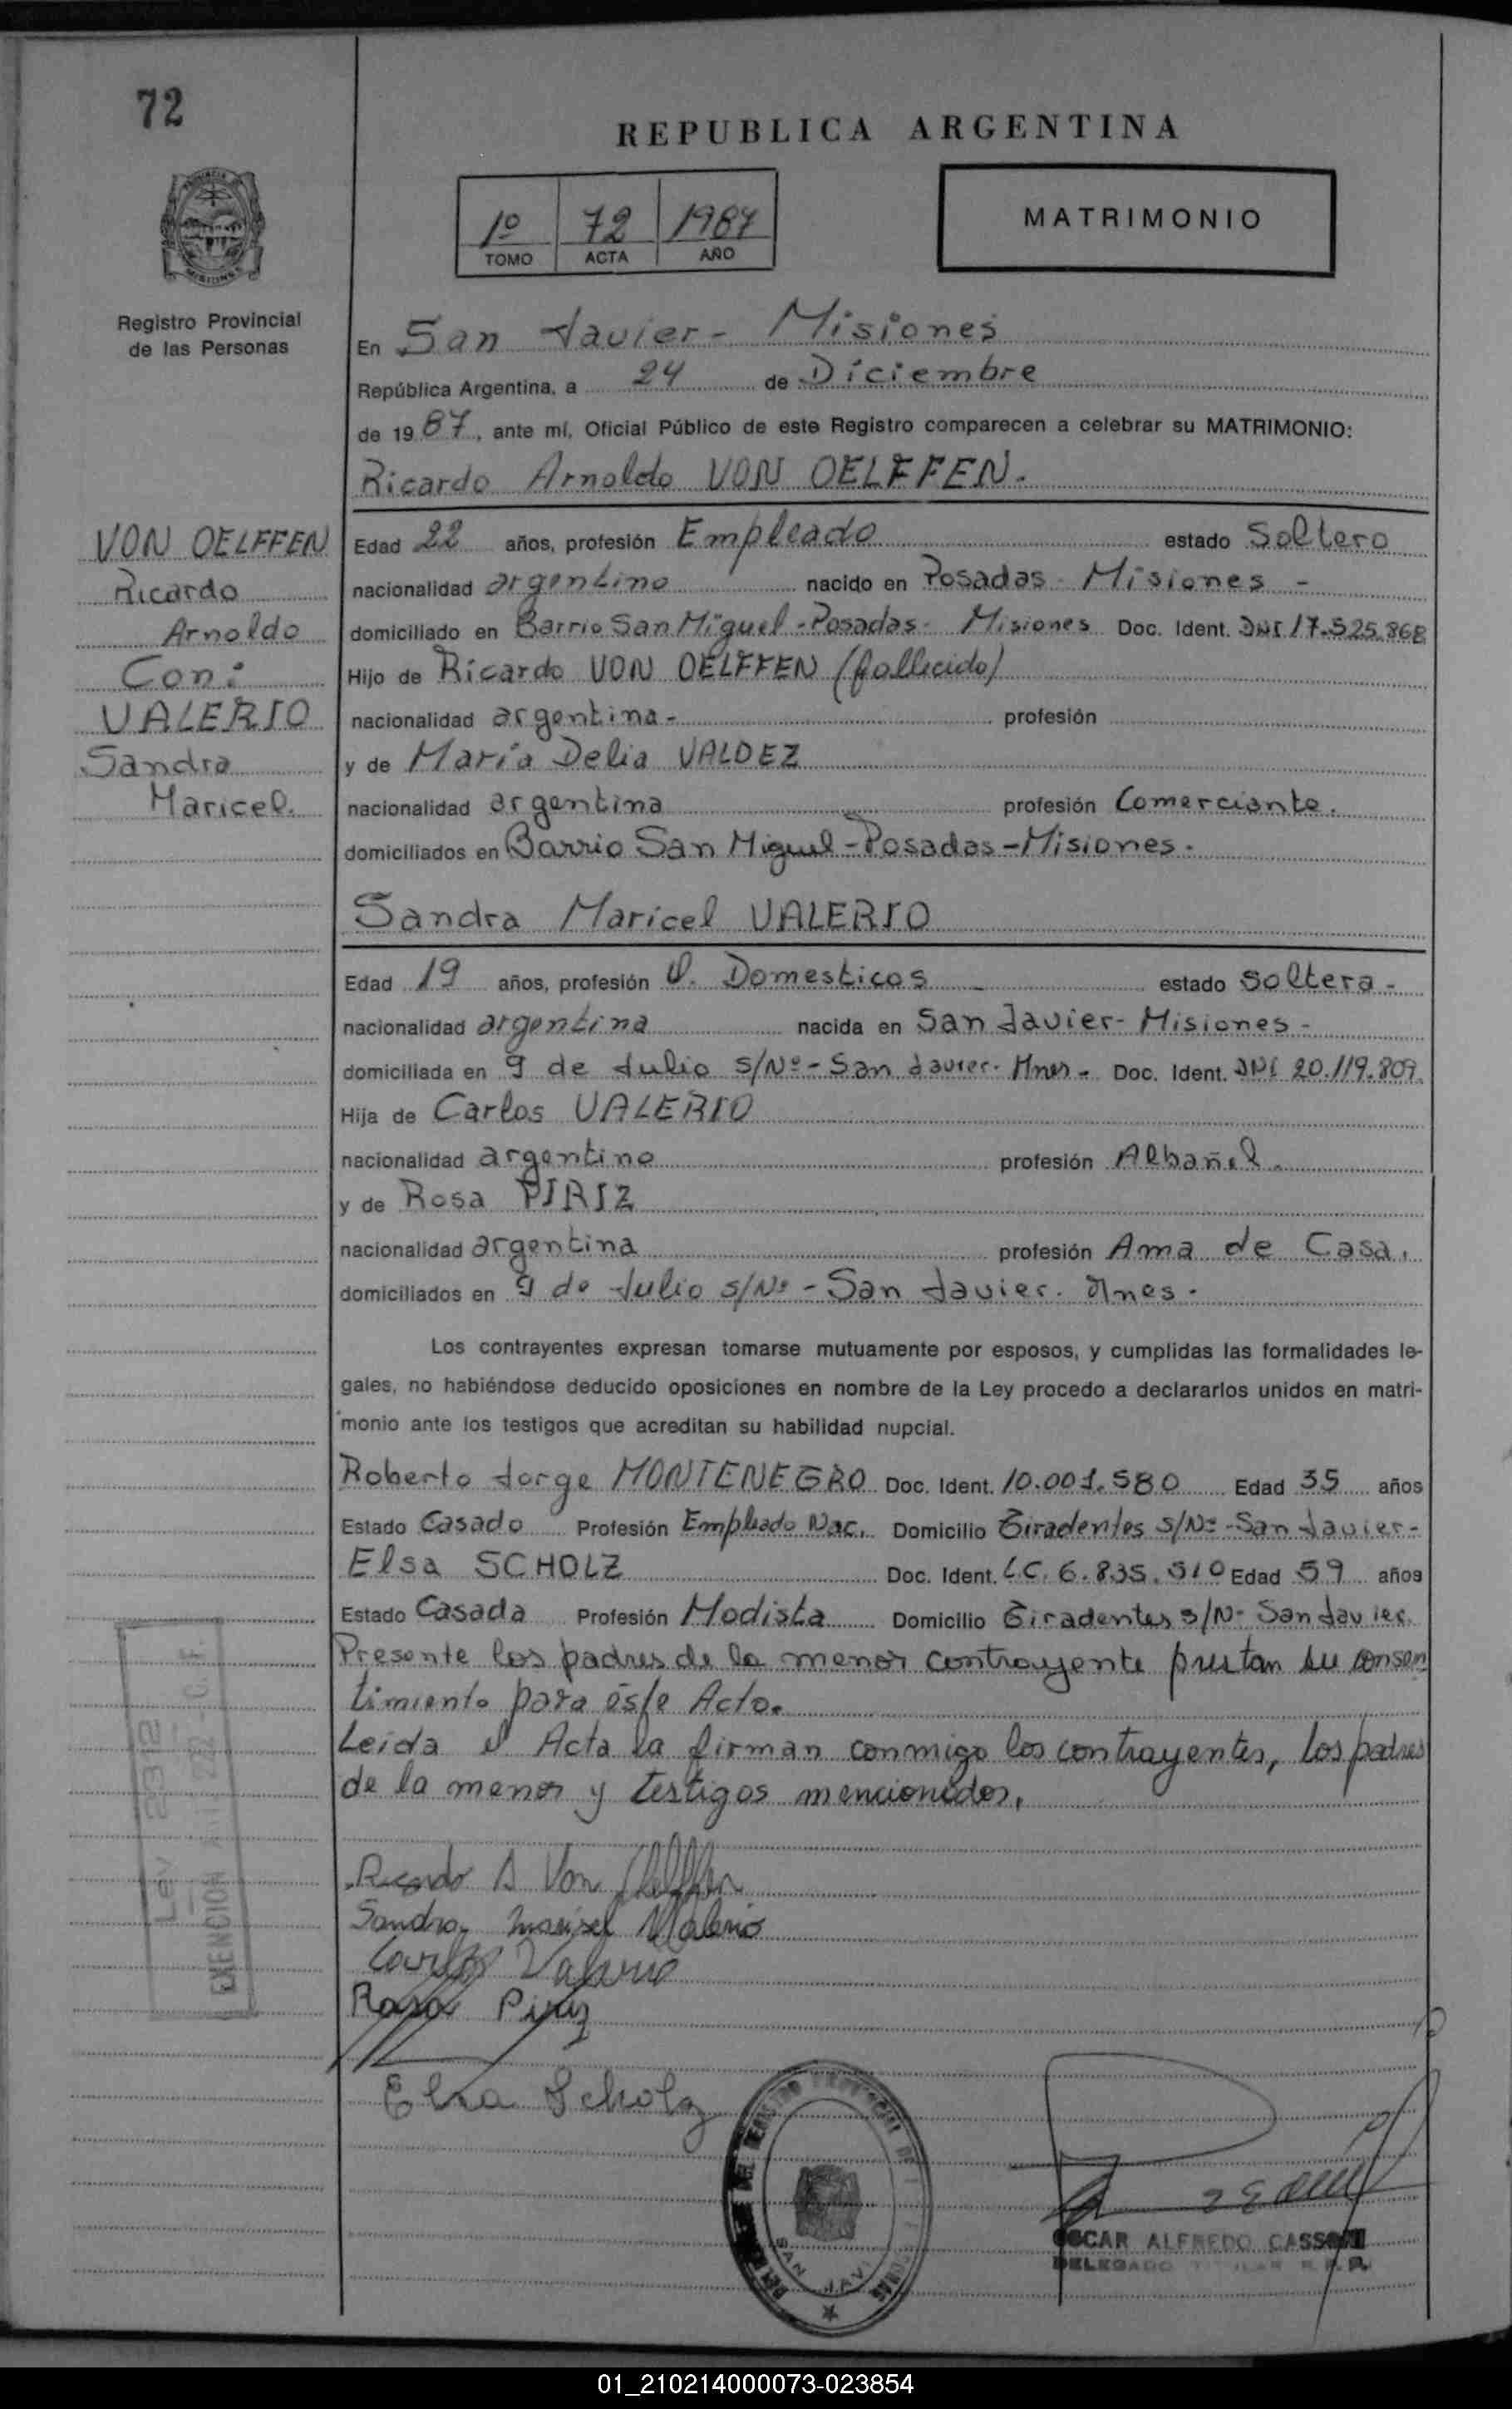 72
REPUBLICA ARGENTINA
1º 72 1987
TOMO ACTA AÑO
MATRIMONIO
MISIONES
Registro Provincial
de las Personas
En San Javier - Misiones
República Argentina, a 24 de Diciembre
de 19 87, ante mí, Oficial Público de este Registro comparecen a celebrar su MATRIMONIO:
Ricardo Arnoldo VON OELFFEN.
VON OELFFEN
Ricardo
Arnoldo
Con:
VALERIO
Sandra
Maricel.
Edad 22 años, profesión Empleado estado Soltero
nacionalidad argentino nacido en Posadas - Misiones -
domiciliado en Barrio San Miguel - Posadas - Misiones Doc. Ident. DNI 17.525.868
Hijo de Ricardo VON OELFFEN (fallecido)
nacionalidad argentina - profesión
y de María Delia VALDEZ
nacionalidad argentina profesión Comerciante.
domiciliados en Barrio San Miguel - Posadas - Misiones.
Sandra Maricel VALERIO
Edad 19 años, profesión Q. Domesticos estado soltera -
nacionalidad argentina nacida en San Javier - Misiones -
domiciliada en 9 de Julio s/Nº - San Javier - Mnes - Doc. Ident. DNI 20.119.809.
Hija de Carlos VALERIO
nacionalidad argentino profesión Albañil.
y de Rosa PIRIZ
nacionalidad argentina profesión Ama de Casa.
domiciliados en 9 de Julio s/Nº - San Javier. Mnes.
Los contrayentes expresan tomarse mutuamente por esposos, y cumplidas las formalidades le-
gales, no habiéndose deducido oposiciones en nombre de la Ley procedo a declararlos unidos en matri-
monio ante los testigos que acreditan su habilidad nupcial.
Roberto Jorge MONTENEGRO Doc. Ident. 10.001.580 Edad 35 años
Estado Casado Profesión Empleado Nac. Domicilio Tiradentes s/Nº - San Javier -
Elsa SCHOLZ Doc. Ident. LC. 6.835.510 Edad 59 años
Estado Casada Profesión Modista Domicilio Tiradentes s/N - San Javier.
Presente los padres de la menor contrayente prestan su consen
timiento para éste Acto.
Leida el Acta la firman conmigo los contrayentes, los padres
de la menor y testigos mencionados.
Ley 2312
EXENCION
Ricardo A Von Oelffen
Sandra Marisel Valerio
Carlos Valerio
Rosa Piriz
Elsa Scholz
SAN JAVI
OSCAR ALFREDO CASSONI
DELEGADO TITULAR R.P.P.
01_210214000073-023854